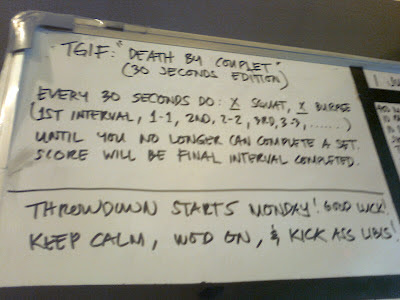 TGIF: "DEATH BY COUPLET"
(30 SECONDS EDITION)
EVERY 30 SECONDS DO: X SQUAT, X BURPEE
(1ST INTERVAL, 1-1, 2ND, 2-2, 3RD, 3-3, ......)
UNTIL YOU NO LONGER CAN COMPLETE A SET.
SCORE WILL BE FINAL INTERVAL COMPLETED.
THROWDOWN STARTS MONDAY! GOOD LUCK!
KEEP CALM, WOD ON, & KICK ASS UBIS!